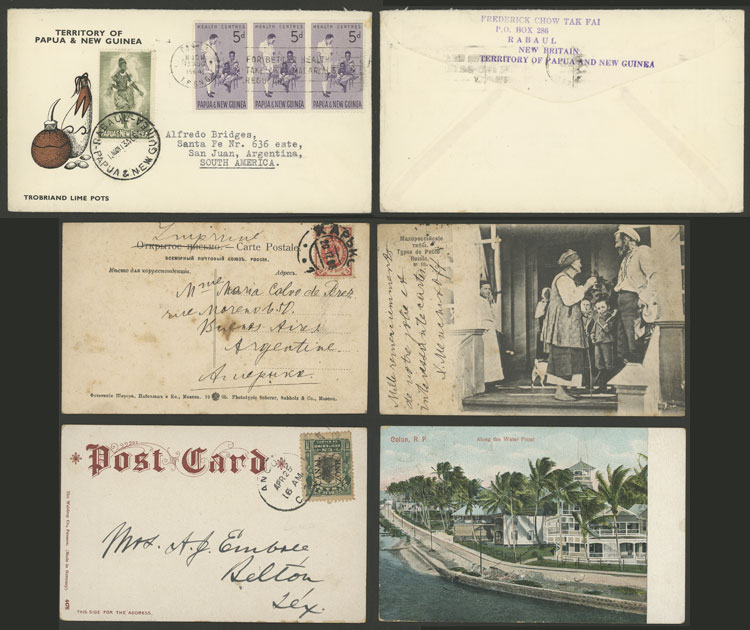 TERRITORY OF
PAPUA & NEW GUINEA
HEALTH CENTRES HEALTH CENTRES HEALTH CENTRES
5d 5d 5d
FOR BETTER HEALTH
TAKE
REGU
PAPUA & NEW GUINEA PAPUA & NEW GUINEA PAPUA & NEW GUINEA
PAPUA & NEW GUINEA
RABAUL
PAPUA & NEW GUINEA
Alfredo Bridges,
Santa Fe Nr. 636 este,
San Juan, Argentina,
SOUTH AMERICA.
TROBRIAND LIME POTS
FREDERICK CHOW TAK FAI
P.O. BOX 286
RABAUL
NEW BRITAIN
TERRITORY OF PAPUA AND NEW GUINEA
Imprimé
Открытое письмо. — Carte Postale.
ВСЕМІРНЫЙ ПОЧТОВЫЙ СОЮЗЪ. РОССІЯ.
Мѣсто для корреспонденціи.
Адресъ.
ХАРЬКО
Mme Maria Calvo de Perez
rue Moreno 650.
Buenos Aires
Argentine.
Америка.
Фототипія Шереръ, Набгольцъ и Ко., Москва.
Phototypie Scherer, Nabholz & Co., Moscou.
Малороссійскіе
типы.
Types de Petite
Russie.
Mille remerciemments
de votre jolie et
interessante carte.
Post Card
APR 26
16 AM
Mrs. A. J. Embree
Belton
Tex.
THIS SIDE FOR THE ADDRESS.
Colon, R. P.
Along the Water Front